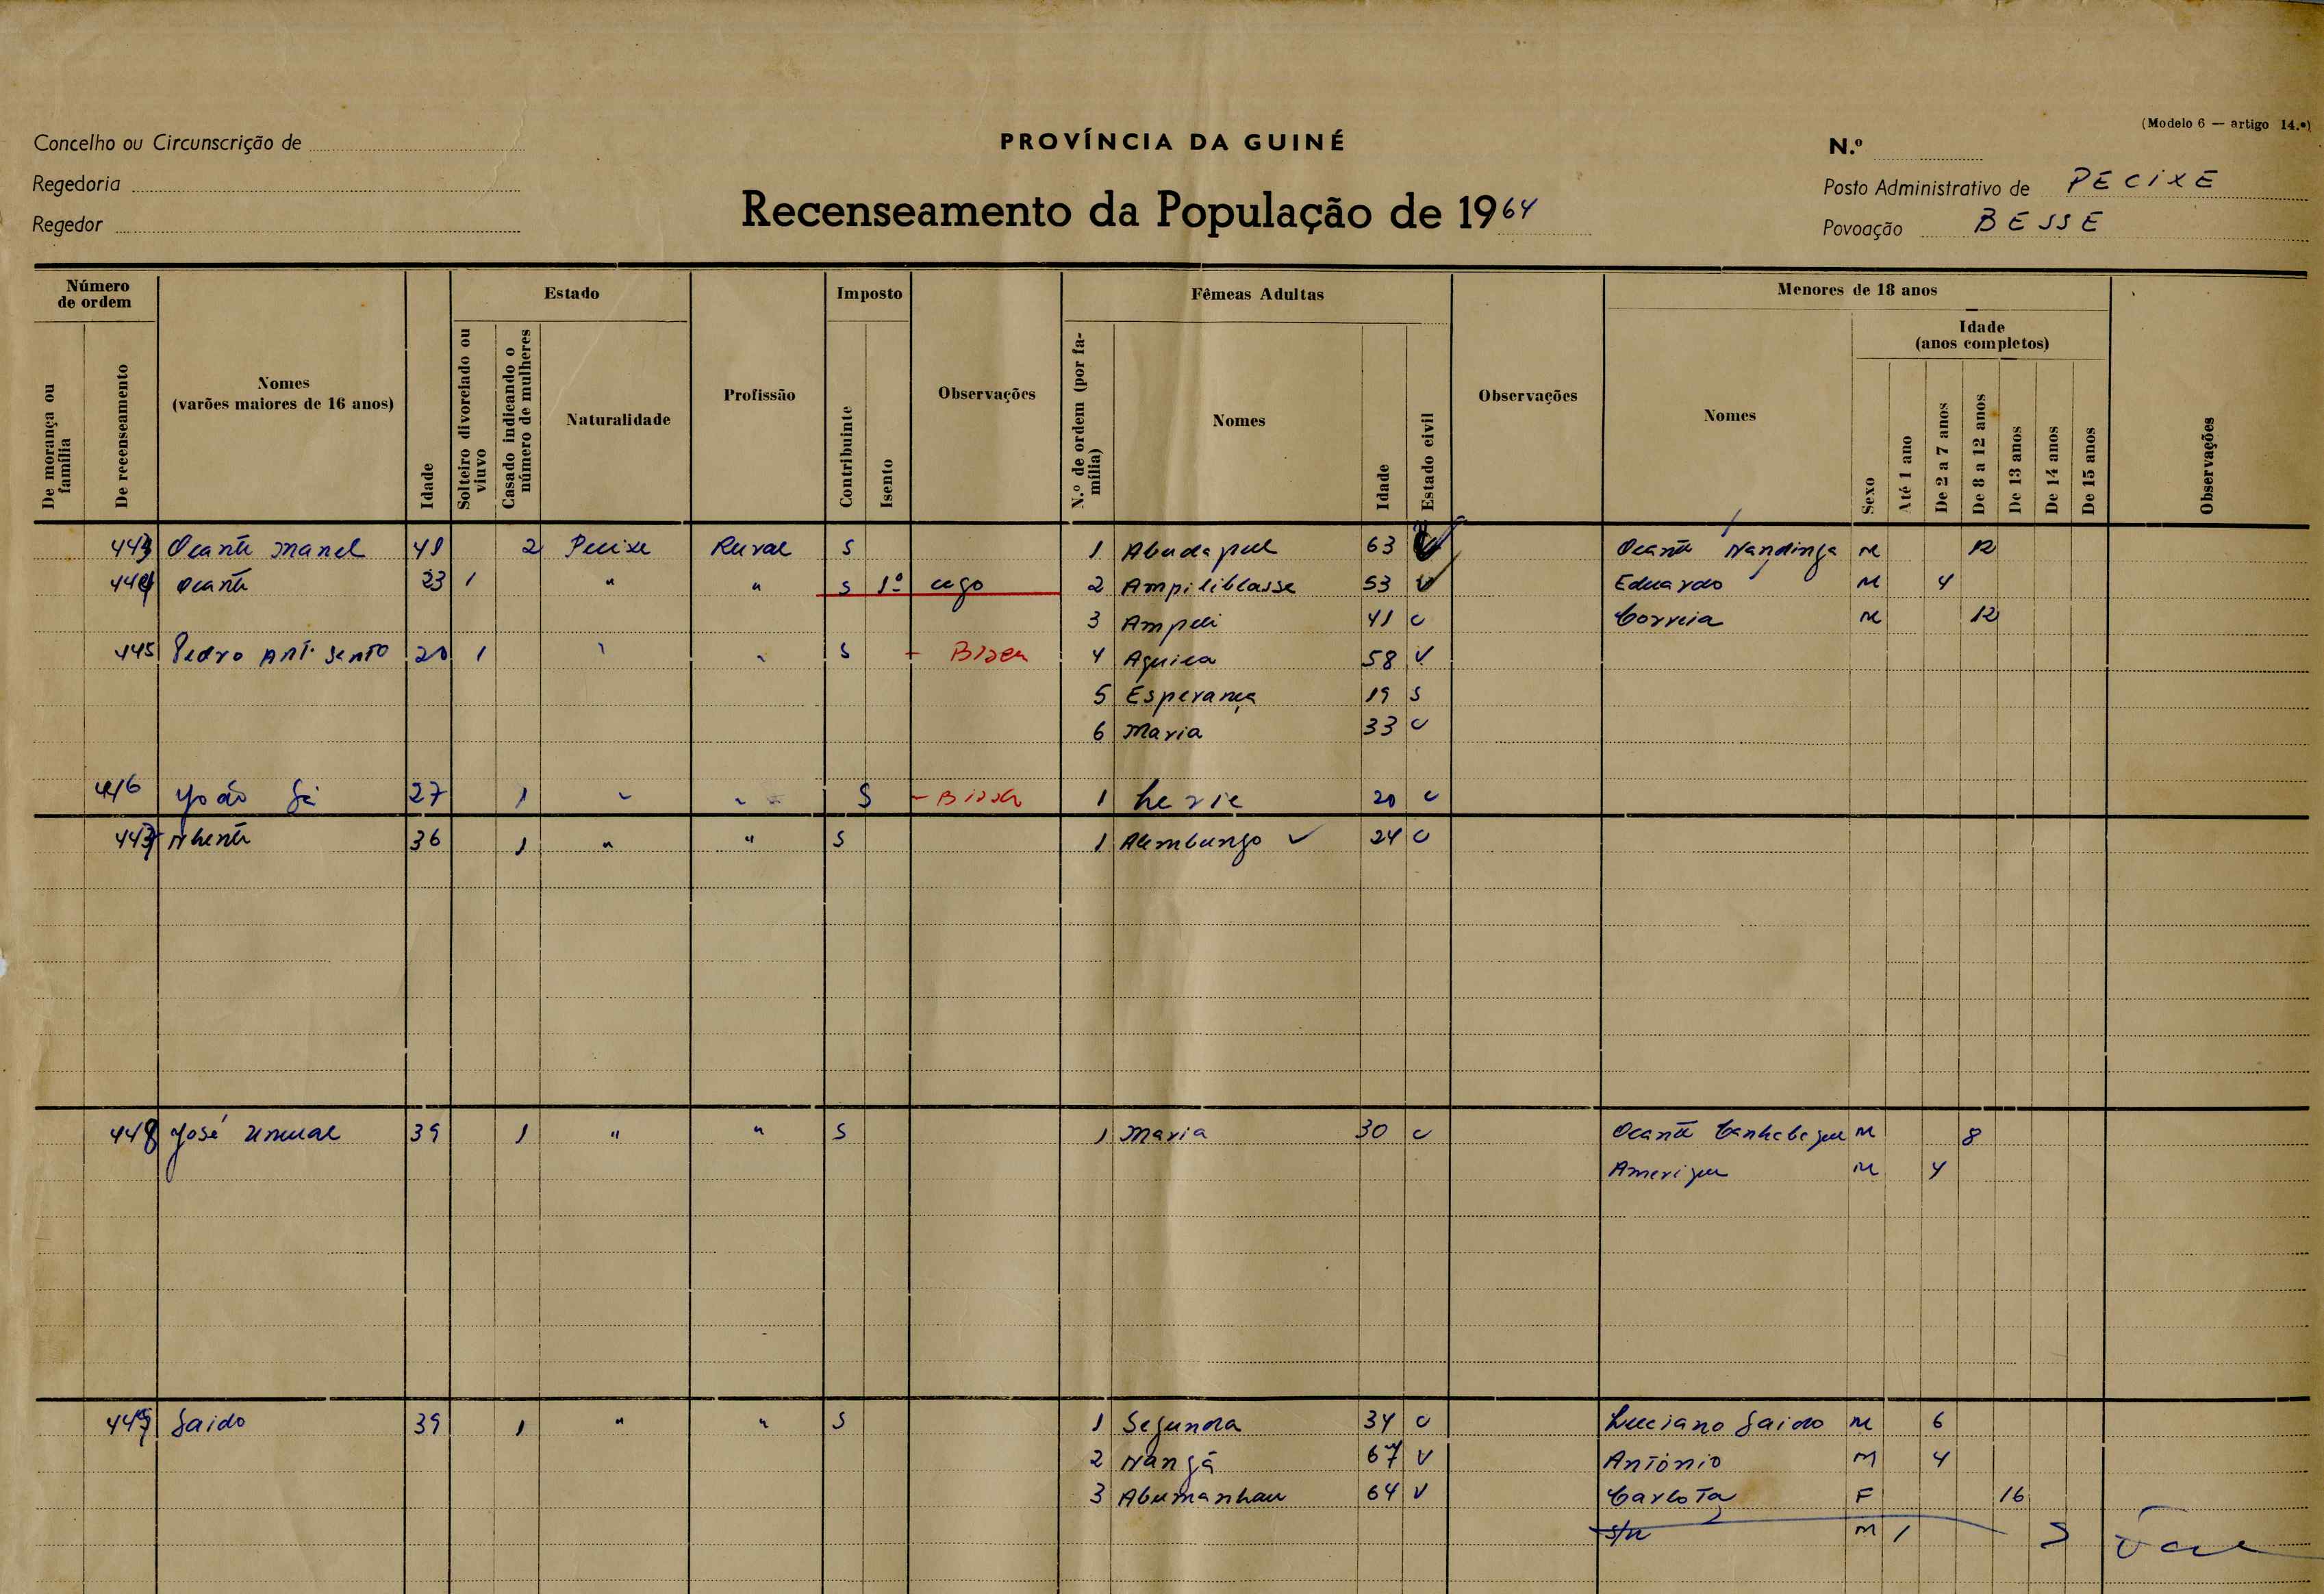 (Modelo 6 — artigo 14.º)
Concelho ou Circunscrição de
PROVÍNCIA DA GUINÉ
N.º
Regedoria
Posto Administrativo de PECIXE
Regedor
Recenseamento da População de 1964
Povoação BESSE
Número de ordem
Estado
Imposto
Fêmeas Adultas
Menores de 18 anos
Idade
(anos completos)
De morança ou família
De recenseamento
Nomes
(varões maiores de 16 anos)
Idade
Solteiro divorciado ou viuvo
Casado indicando o número de mulheres
Naturalidade
Profissão
Contribuinte
Isento
Observações
N.º de ordem (por família)
Nomes
Idade
Estado civil
Observações
Nomes
Sexo
Até 1 ano
De 2 a 7 anos
De 8 a 12 anos
De 13 anos
De 14 anos
De 15 anos
Observações
443 Ocante Manel 41 2 Pecixe Rural S 1 63 Ocante Nandinga M 12
444 Ocante 23 1 " " S 1º cego 2 Ampiliblasse 53 V Eduardo M 4
3 Ampili 41 C Correia M 12
445 Pedro Ant. Sento 20 1 " " S + 4 58 V
5 Esperança 19 S
6 Maria 33 C
446 João Sá 27 1 " " S 1 20 C
447 Nhente 36 1 " " S 1 Alembungo 24 C
448 José 39 1 " " S 1 Maria 30 C Ocante M 8
M 4
449 Saido 39 1 " " S 1 Segunda 34 C Luciano Saido M 6
2 Nangã 67 V António M 4
3 Abumanhau 64 V Carlota F 16
s/n M 1